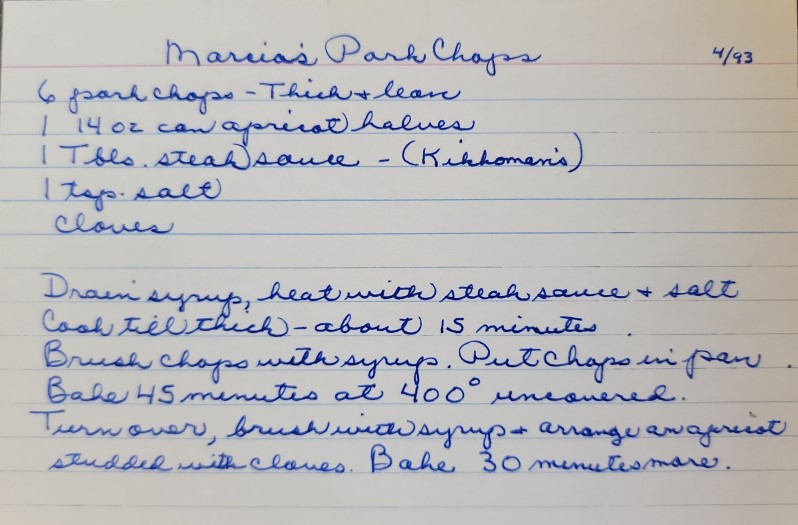 Marcia's Pork Chops 4/93
6 pork chops - Thick + lean
1 14 oz can apricot halves
1 Tbls. steak sauce - (Kikkoman's)
1 tsp. salt
cloves
Drain syrup, heat with steak sauce + salt
Cook till thick - about 15 minutes.
Brush chops with syrup. Put chops in pan.
Bake 45 minutes at 400° uncovered.
Turn over, brush with syrup + arrange an apricot
studded with cloves. Bake 30 minutes more.